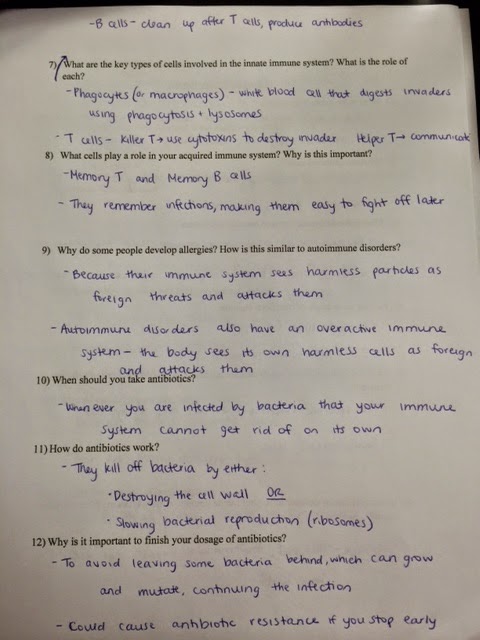 -B cells- clean up after T cells, produce antibodies
7) What are the key types of cells involved in the innate immune system? What is the role of
each?
-Phagocytes (or macrophages) - white blood cell that digests invaders
using phagocytosis + lysosomes
- T cells - Killer T → use cytotoxins to destroy invader Helper T → communicate
8) What cells play a role in your acquired immune system? Why is this important?
-Memory T and Memory B cells
- They remember infections, making them easy to fight off later
9) Why do some people develop allergies? How is this similar to autoimmune disorders?
-Because their immune system sees harmless particles as
foreign threats and attacks them
- Autoimmune disorders also have an overactive immune
system - the body sees its own harmless cells as foreign
and attacks them
10) When should you take antibiotics?
-Whenever you are infected by bacteria that your immune
system cannot get rid of on its own
11) How do antibiotics work?
- They kill off bacteria by either:
•Destroying the cell wall OR
•Slowing bacterial reproduction (ribosomes)
12) Why is it important to finish your dosage of antibiotics?
- To avoid leaving some bacteria behind, which can grow
and mutate, continuing the infection
- Could cause antibiotic resistance if you stop early